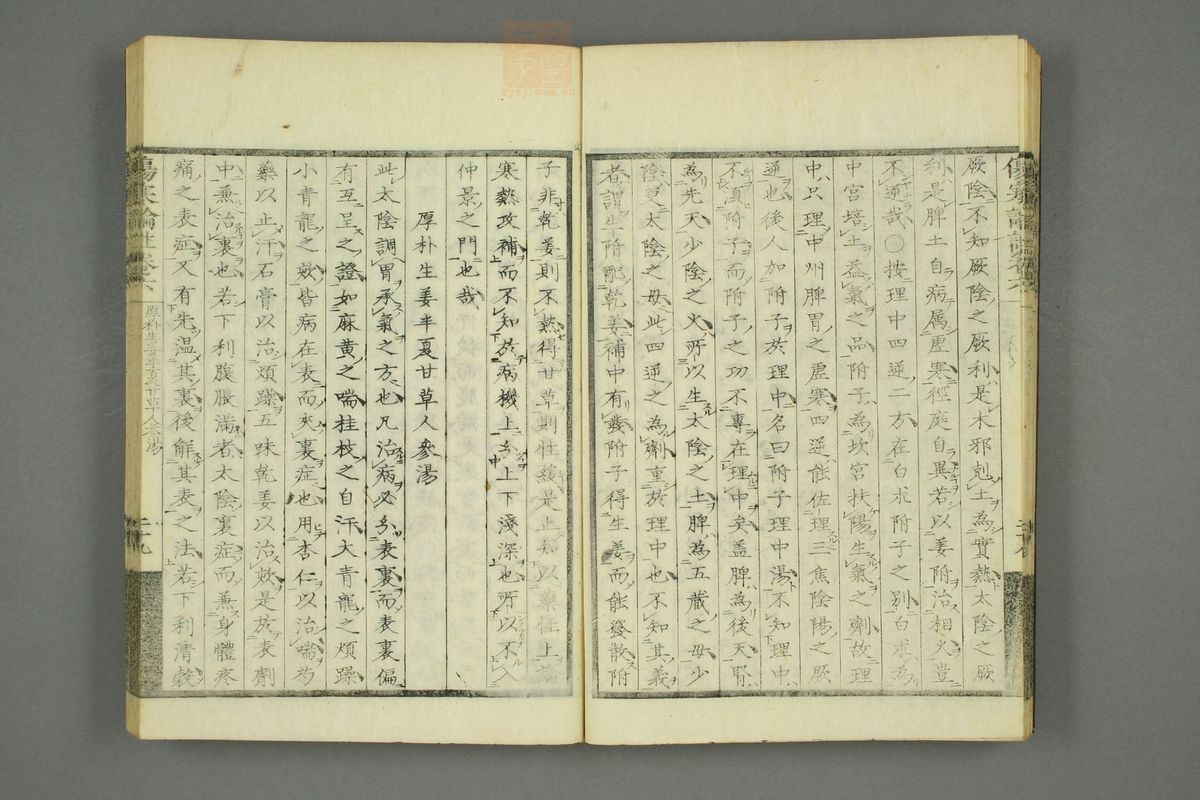 厥陰不知厥陰之厥利是木邪剋土為實熱太陰之厥
利是脾土自病属虛寒徑庭自異若以姜附治相火豈
不逆哉〇按理中四逆二方在白求附子之別白求為
中宮培土益氣之品附子為坎宮扶陽生氣之劑故理
中只理中州脾胃之虛寒四逆能佐理三焦陰陽之厥
逆也後人加附子於理中名曰附子理中湯不知理中
不須附子而附子之功不專在理中矣盖脾為後天腎
為先天少陰之火所以生太陰之土脾為五蔵之母少
陰更太陰之母此四逆之為劑重於理中也不知其義
者謂生附配乾姜補中有發附子得生姜而能發散附
子非乾姜則不熱得甘草則性緩是止知以藥性上
寒熱攻補而不知於病機上分上下淺深也所以不入
仲景之門也哉
厚朴生姜半夏甘草人參湯
此太陰調胃承氣之方也凡治病必分表裏而表裏偏
有互呈之證如麻黄之喘桂枝之自汗大青龍之煩躁
小青龍之欬皆病在表而夾裏症也用杏仁以治喘芍
藥以止汗石膏以治煩躁五味乾姜以治欬是於表劑
中兼治裏也若下利腹脹滿者太陰裏症而兼身體疼
痛之表症又有先温其裏後解其表之法若下利清穀
傷寒論註卷六
厚朴生姜半夏甘草人參湯
二十九
zysj.com.cn